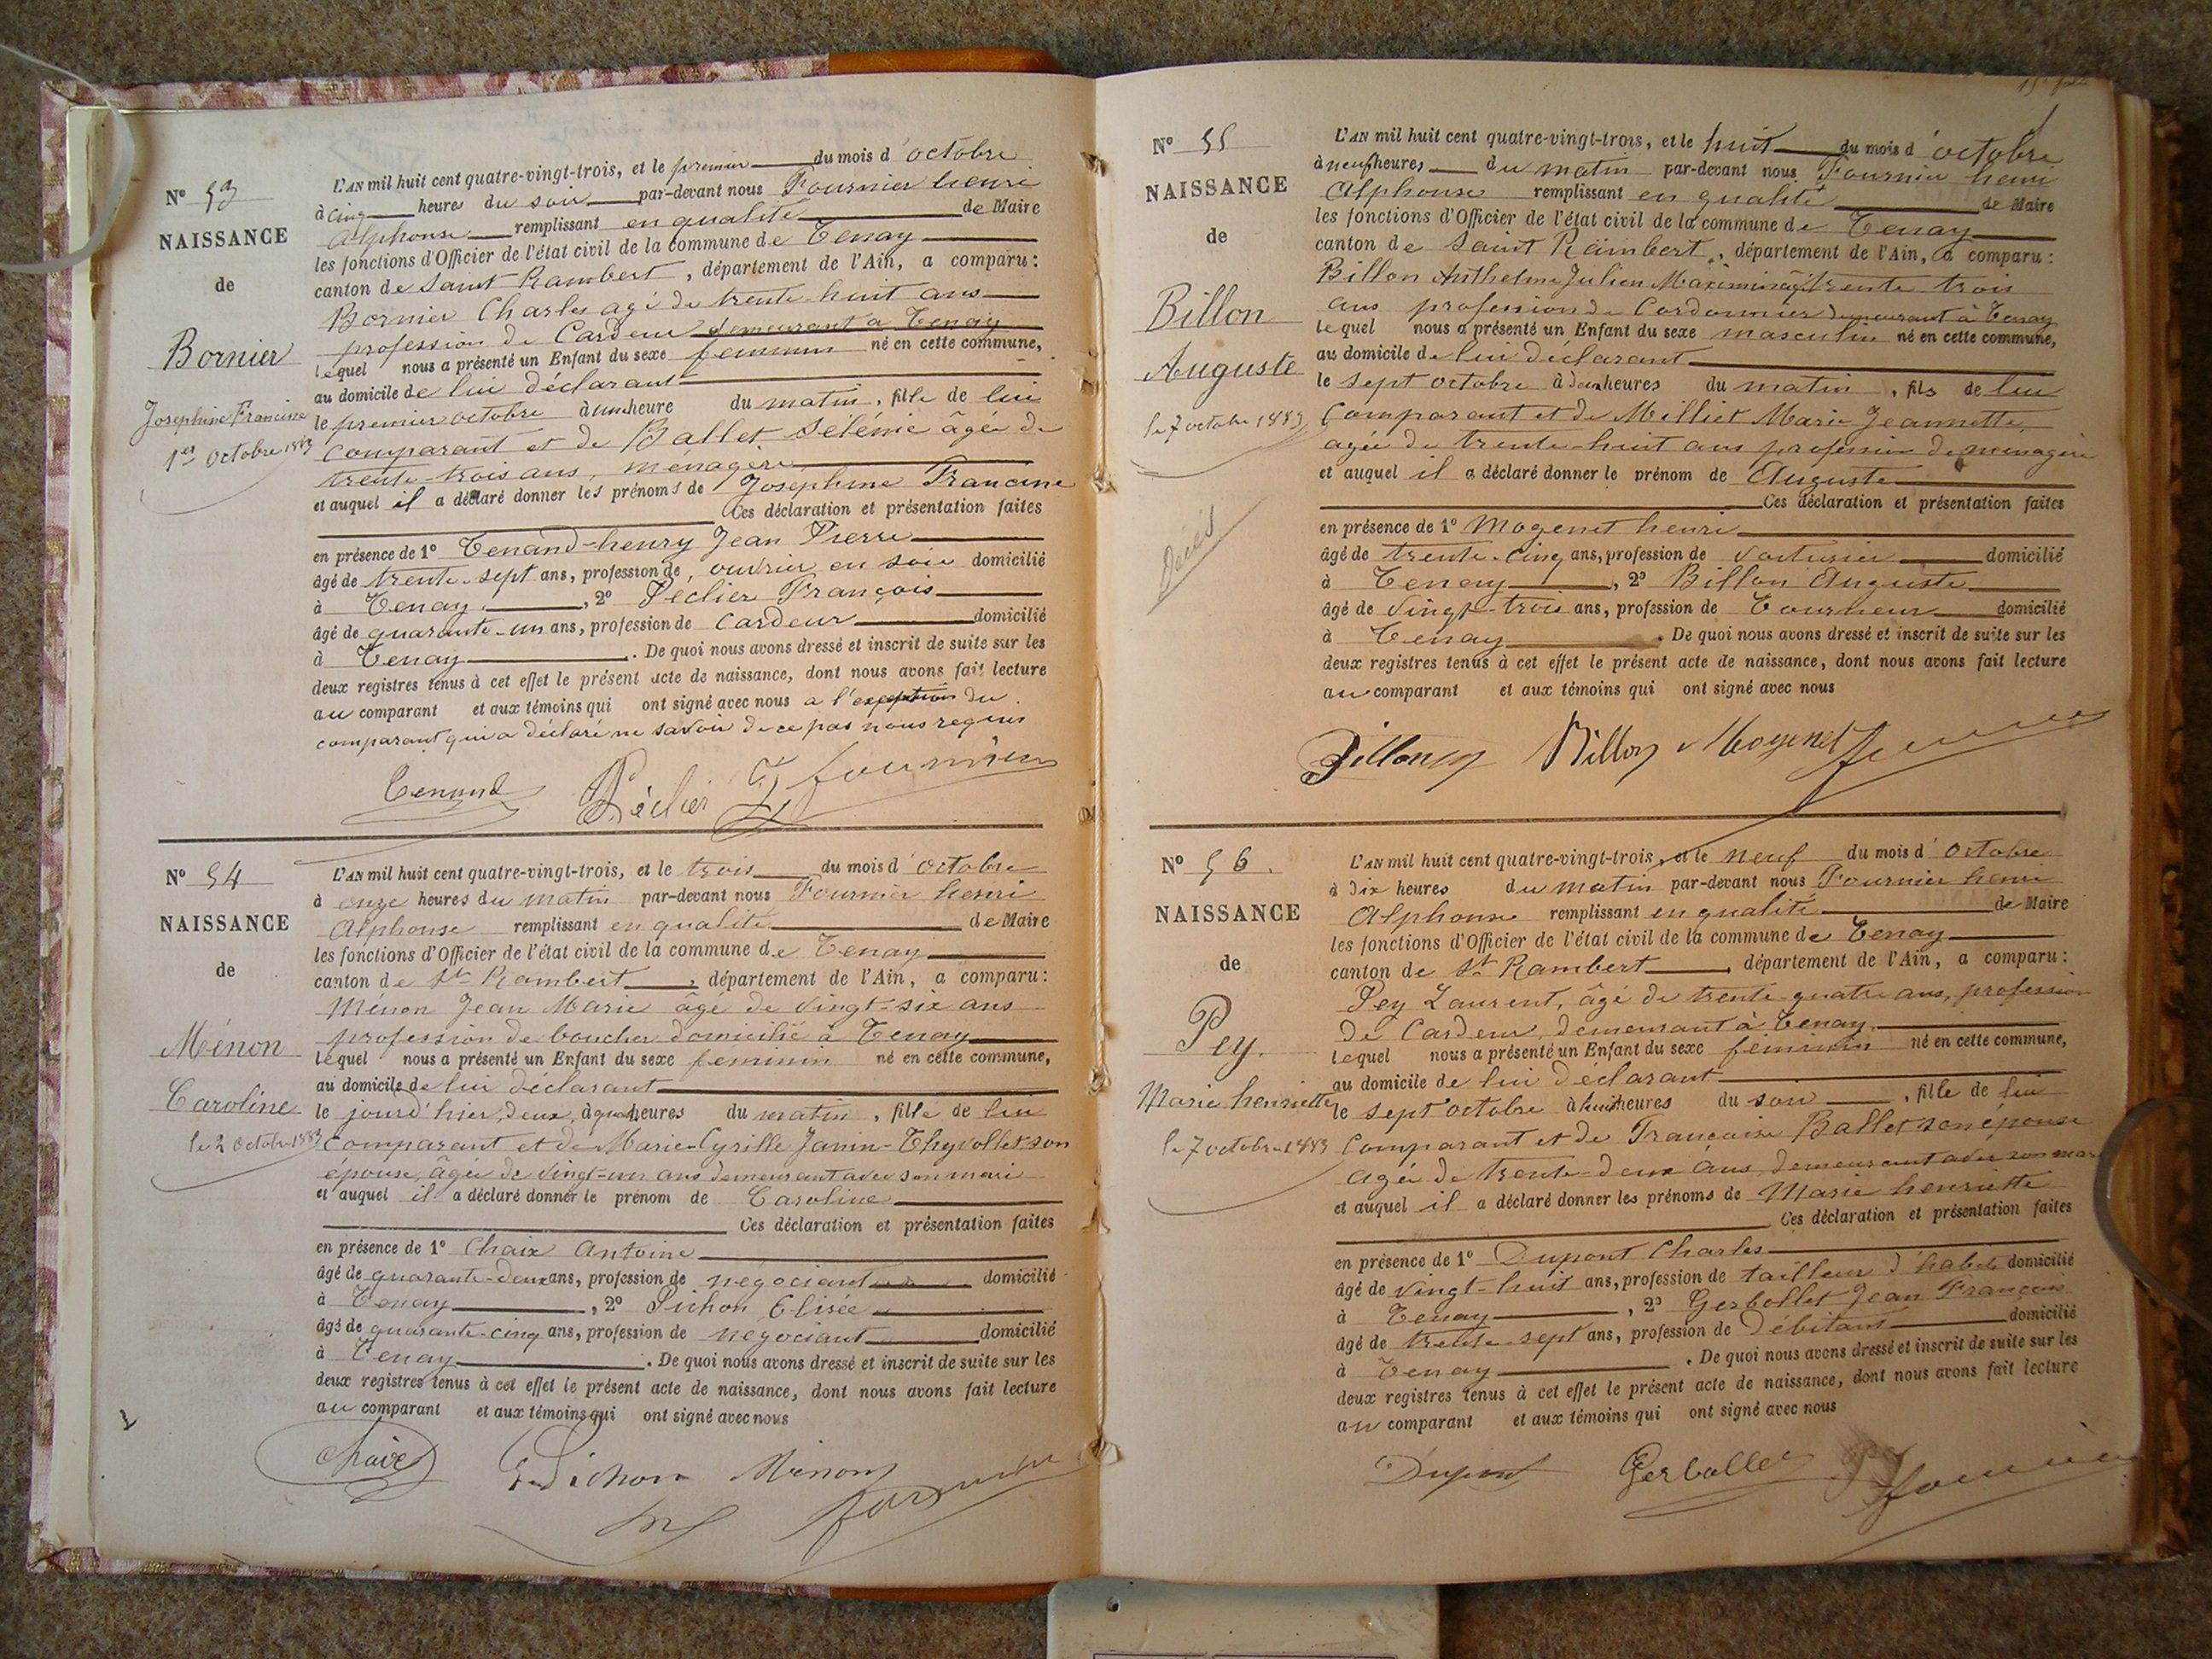 Nº 53
NAISSANCE
de
Bornier
Josephine Francine
1er octobre 1883
L'AN mil huit cent quatre-vingt-trois, et le premier du mois d'octobre
à cinq heures du soir par-devant nous Fournier henri
Alphonse remplissant en qualité de Maire
les fonctions d'Officier de l'état civil de la commune de Tenay
canton de Saint Rambert, département de l'Ain, a comparu:
Bornier Charles agé de trente-huit ans
profession de Cardeur demeurant a Tenay
lequel nous a présenté un Enfant du sexe feminin né en cette commune,
au domicile de lui déclarant
le premier octobre à une heure du matin, fille de lui
comparant et de Ballet Sélénie âgée de
trente-trois ans, ménagère
et auquel il a déclaré donner les prénoms de Josephine Francine
Ces déclaration et présentation faites
en présence de 1º Tenand-henry Jean Pierre
âgé de trente-sept ans, profession de, ouvrier en soie domicilié
à Tenay, 2º Péclier François
âgé de quarante-un ans, profession de Cardeur domicilié
à Tenay. De quoi nous avons dressé et inscrit de suite sur les
deux registres tenus à cet effet le présent acte de naissance, dont nous avons fait lecture
au comparant et aux témoins qui ont signé avec nous a l'exception du
comparant qui a déclaré ne savoir de ce par nous requis
Tenand Péclier Fournier
Nº 54
NAISSANCE
de
Ménon
Caroline
le 2 octobre 1883
L'AN mil huit cent quatre-vingt-trois, et le trois du mois d'octobre
à onze heures du matin par-devant nous Fournier henri
Alphonse remplissant en qualité de Maire
les fonctions d'Officier de l'état civil de la commune de Tenay
canton de St Rambert, département de l'Ain, a comparu:
Ménon Jean Marie âgé de vingt-six ans
profession de boucher domicilié à Tenay
lequel nous a présenté un Enfant du sexe feminin né en cette commune,
au domicile de lui déclarant
le jourd'hier, deux, à quatre heures du matin, fille de lui
comparant et de Marie-Cyrille Janin-Thyvollet son
épouse, âgée de vingt-un ans demeurant avec son mari
et auquel il a déclaré donner le prénom de Caroline
Ces déclaration et présentation faites
en présence de 1º Chaix Antoine
âgé de quarante-deux ans, profession de négociant domicilié
à Tenay, 2º Pichon Elisée
âgé de quarante-cinq ans, profession de négociant domicilié
à Tenay. De quoi nous avons dressé et inscrit de suite sur les
deux registres tenus à cet effet le présent acte de naissance, dont nous avons fait lecture
au comparant et aux témoins qui ont signé avec nous
Chaix E. Pichon Ménon
Fournier
Nº 55
NAISSANCE
de
Billon
Auguste
le 7 octobre 1883
Décés
L'AN mil huit cent quatre-vingt-trois, et le huit du mois d'octobre
à neuf heures du matin par-devant nous Fournier henri
Alphonse remplissant en qualité de Maire
les fonctions d'Officier de l'état civil de la commune de Tenay
canton de Saint Rambert, département de l'Ain, a comparu:
Billon Anthelme Julien Maximin âgé trente trois
ans profession de Cordonnier demeurant à Tenay
lequel nous a présenté un Enfant du sexe masculin né en cette commune,
au domicile de lui déclarant
le sept octobre à deux heures du matin, fils de lui
comparant et de Milliet Marie Jeannette,
agée de trente-huit ans profession de menagère
et auquel il a déclaré donner le prénom de Auguste
Ces déclaration et présentation faites
en présence de 1º Mogenet henri
âgé de trente-cinq ans, profession de voiturier domicilié
à Tenay, 2º Billon Auguste
âgé de vingt-trois ans, profession de Tourneur domicilié
à Tenay. De quoi nous avons dressé et inscrit de suite sur les
deux registres tenus à cet effet le présent acte de naissance, dont nous avons fait lecture
au comparant et aux témoins qui ont signé avec nous
Billon Billon Mogenet
Nº 56.
NAISSANCE
de
Pey.
Marie henriette
le 7 octobre 1883
L'AN mil huit cent quatre-vingt-trois, et le neuf du mois d'octobre
à dix heures du matin par-devant nous Fournier henri
Alphonse remplissant en qualité de Maire
les fonctions d'Officier de l'état civil de la commune de Tenay
canton de St Rambert, département de l'Ain, a comparu:
Pey Laurent, âgé de trente-quatre ans, profession
de Cardeur, demeurant à Tenay,
lequel nous a présenté un Enfant du sexe feminin né en cette commune,
au domicile de lui déclarant
le sept octobre à huit heures du soir, fille de lui
comparant et de Françoise Ballet son épouse
agée de trente-deux ans, demeurant avec son mari
et auquel il a déclaré donner les prénoms de Marie henriette
Ces déclaration et présentation faites
en présence de 1º Dupont Charles
âgé de vingt-huit ans, profession de tailleur d'habits domicilié
à Tenay, 2º Gerbollet Jean François
âgé de trente-sept ans, profession de Débitant domicilié
à Tenay. De quoi nous avons dressé et inscrit de suite sur les
deux registres tenus à cet effet le présent acte de naissance, dont nous avons fait lecture
au comparant et aux témoins qui ont signé avec nous
Dupont Gerbollet Pey Fournier